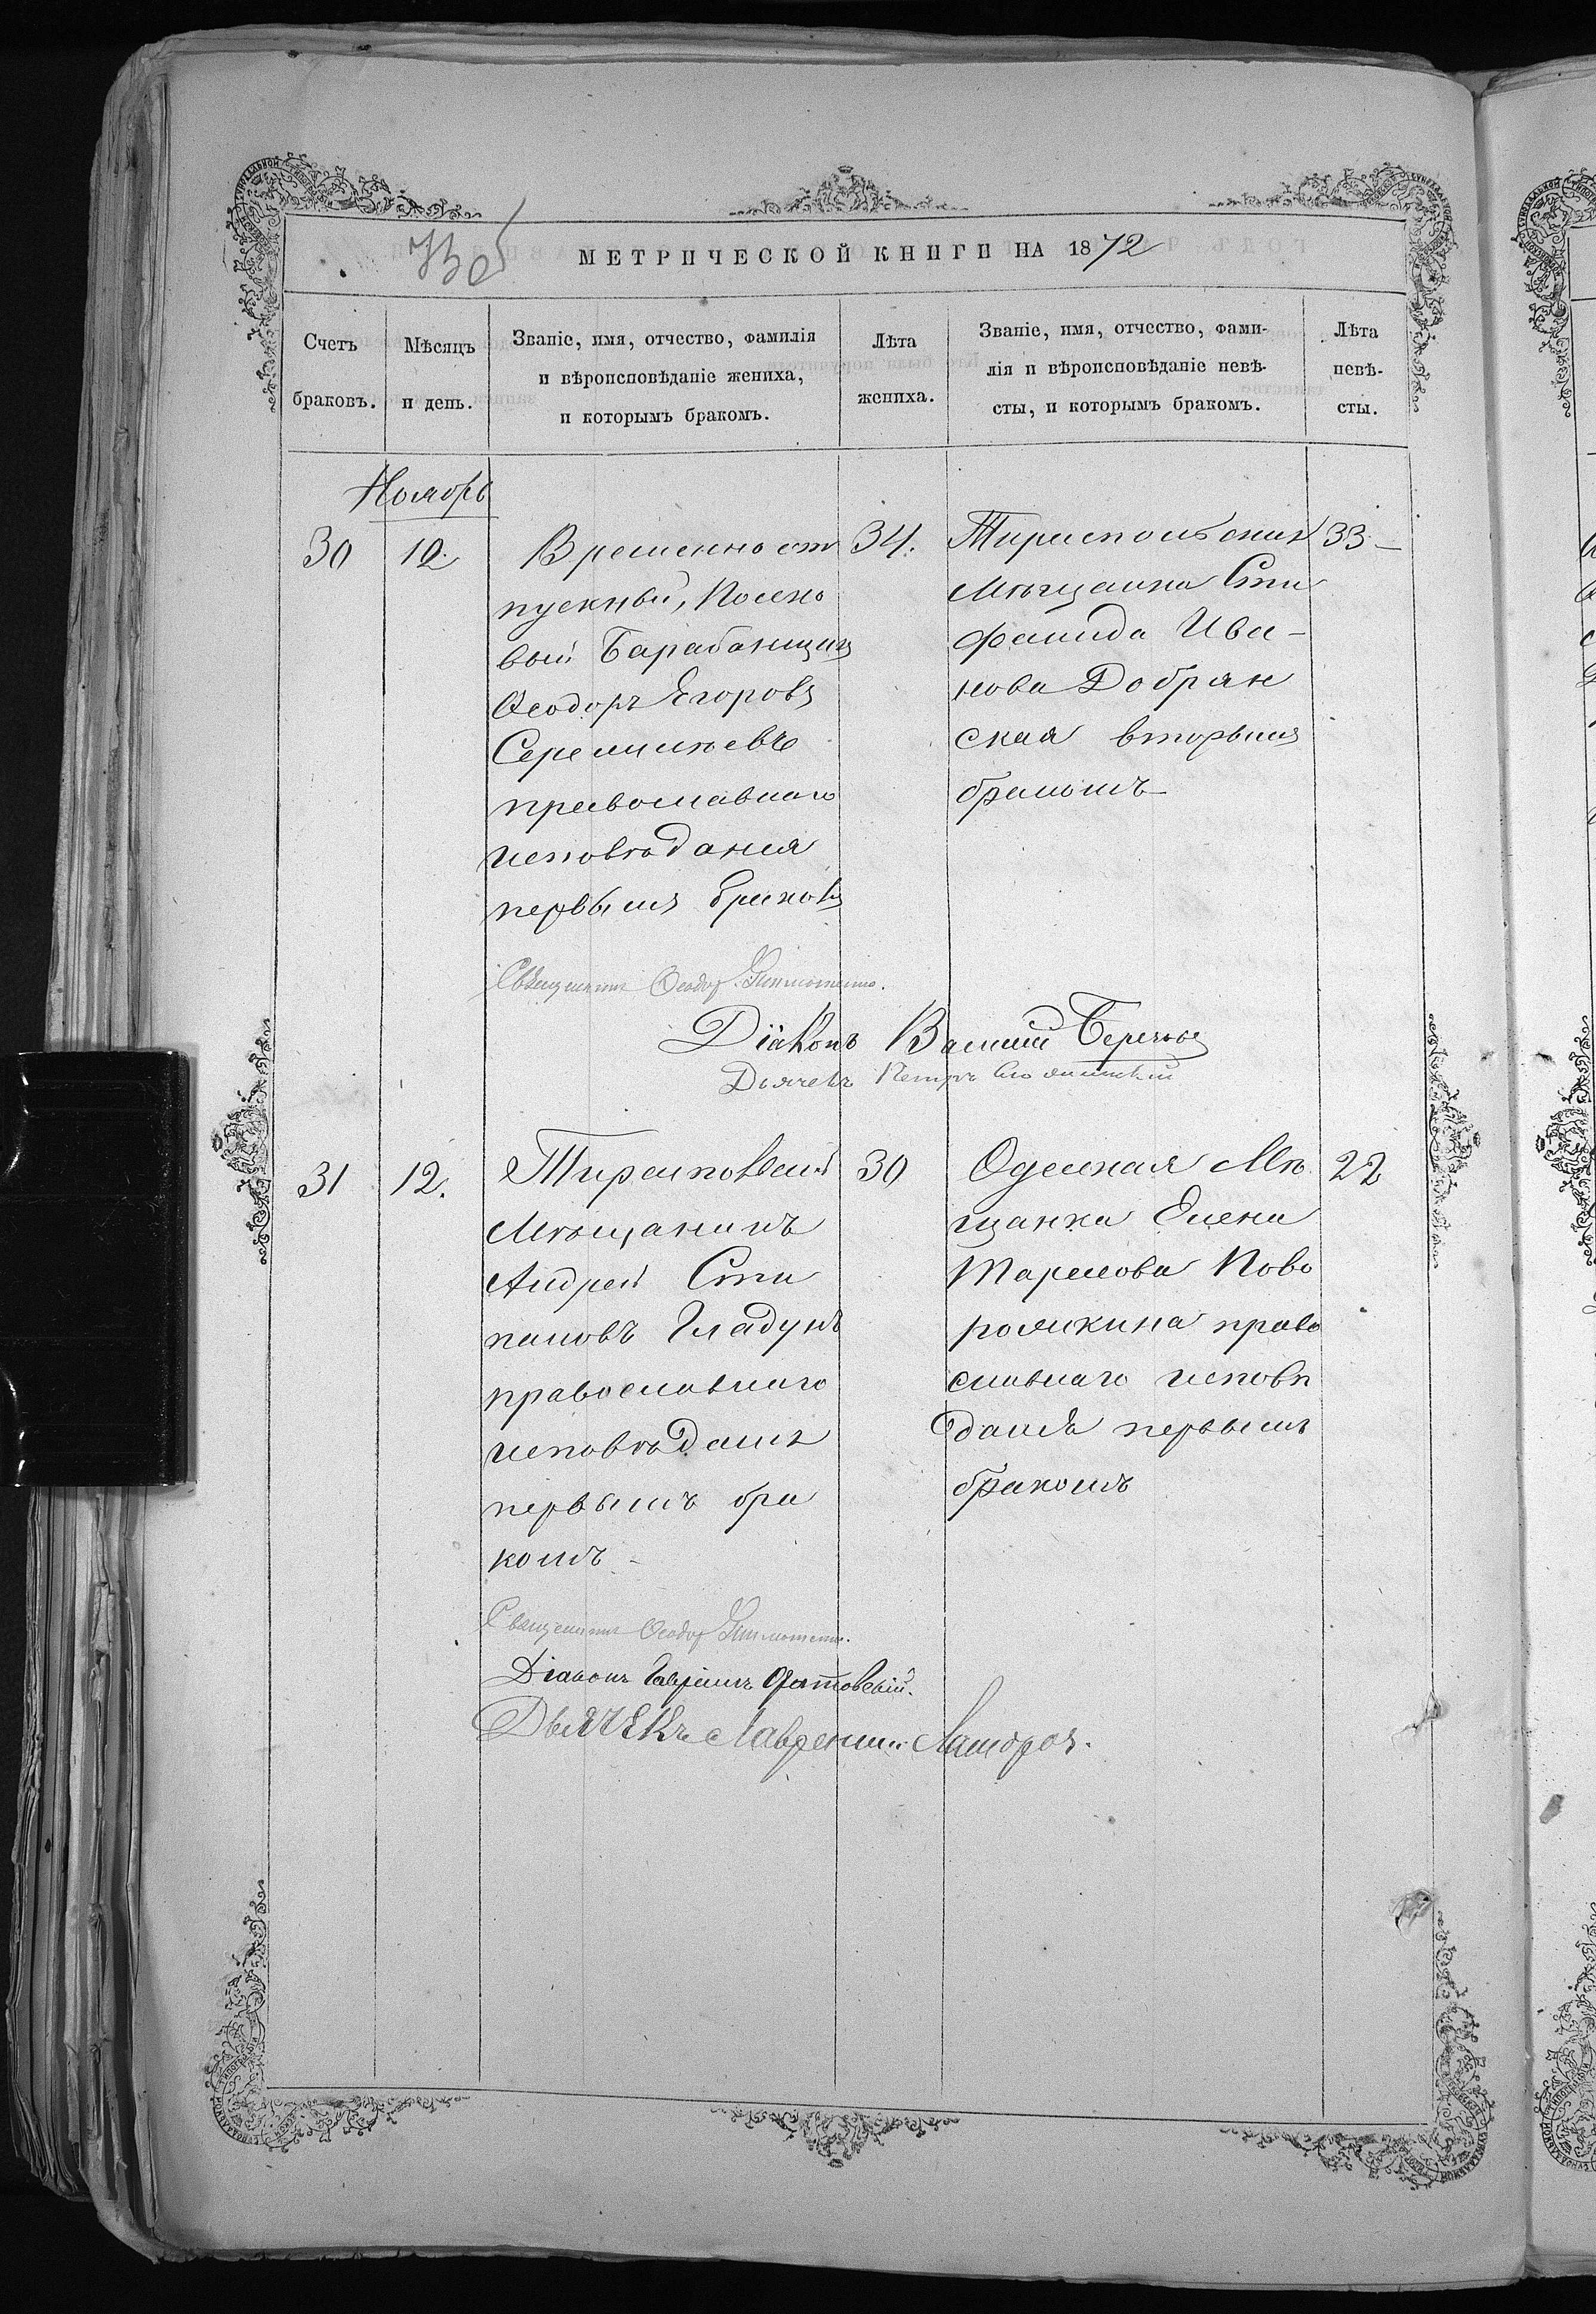 МЕТРИЧЕСКОЙ КНИГИ НА 1872
Счетъ браковъ.
Мѣсяцъ и день.
Званіе, имя, отчество, фамилія
и вѣроисповѣданіе жениха,
и которымъ бракомъ.
Лѣта жениха.
Званіе, имя, отчество, фами-
лія и вѣроисповѣданіе невѣ-
сты, и которымъ бракомъ.
Лѣта невѣ-
сты.
Ноябрь
30
12.
Временно от
пускный,
вый Барабанщикъ
Ѳеодоръ Егоровъ
православнаго
исповѣданія
первымъ бракомъ
34.
Мѣщанка Сти
фанида Ива-
нова Добрян
ская вторымъ
бракомъ
33
Священникъ Ѳеодоръ
Діаконъ Василій
Дьячекъ Петръ
31
12.
Тираспольскій
Мѣщанинъ
Андрей Сти
пановъ Гладунъ
православнаго
исповѣданія
первымъ бра
комъ
30
Одесская Мѣ
щанка Елена
Тарасова
право
славнаго исповѣ
данія первымъ
бракомъ
22
Священникъ Ѳеодоръ
Діаконъ Гавріилъ
Дьячекъ Лаврентій